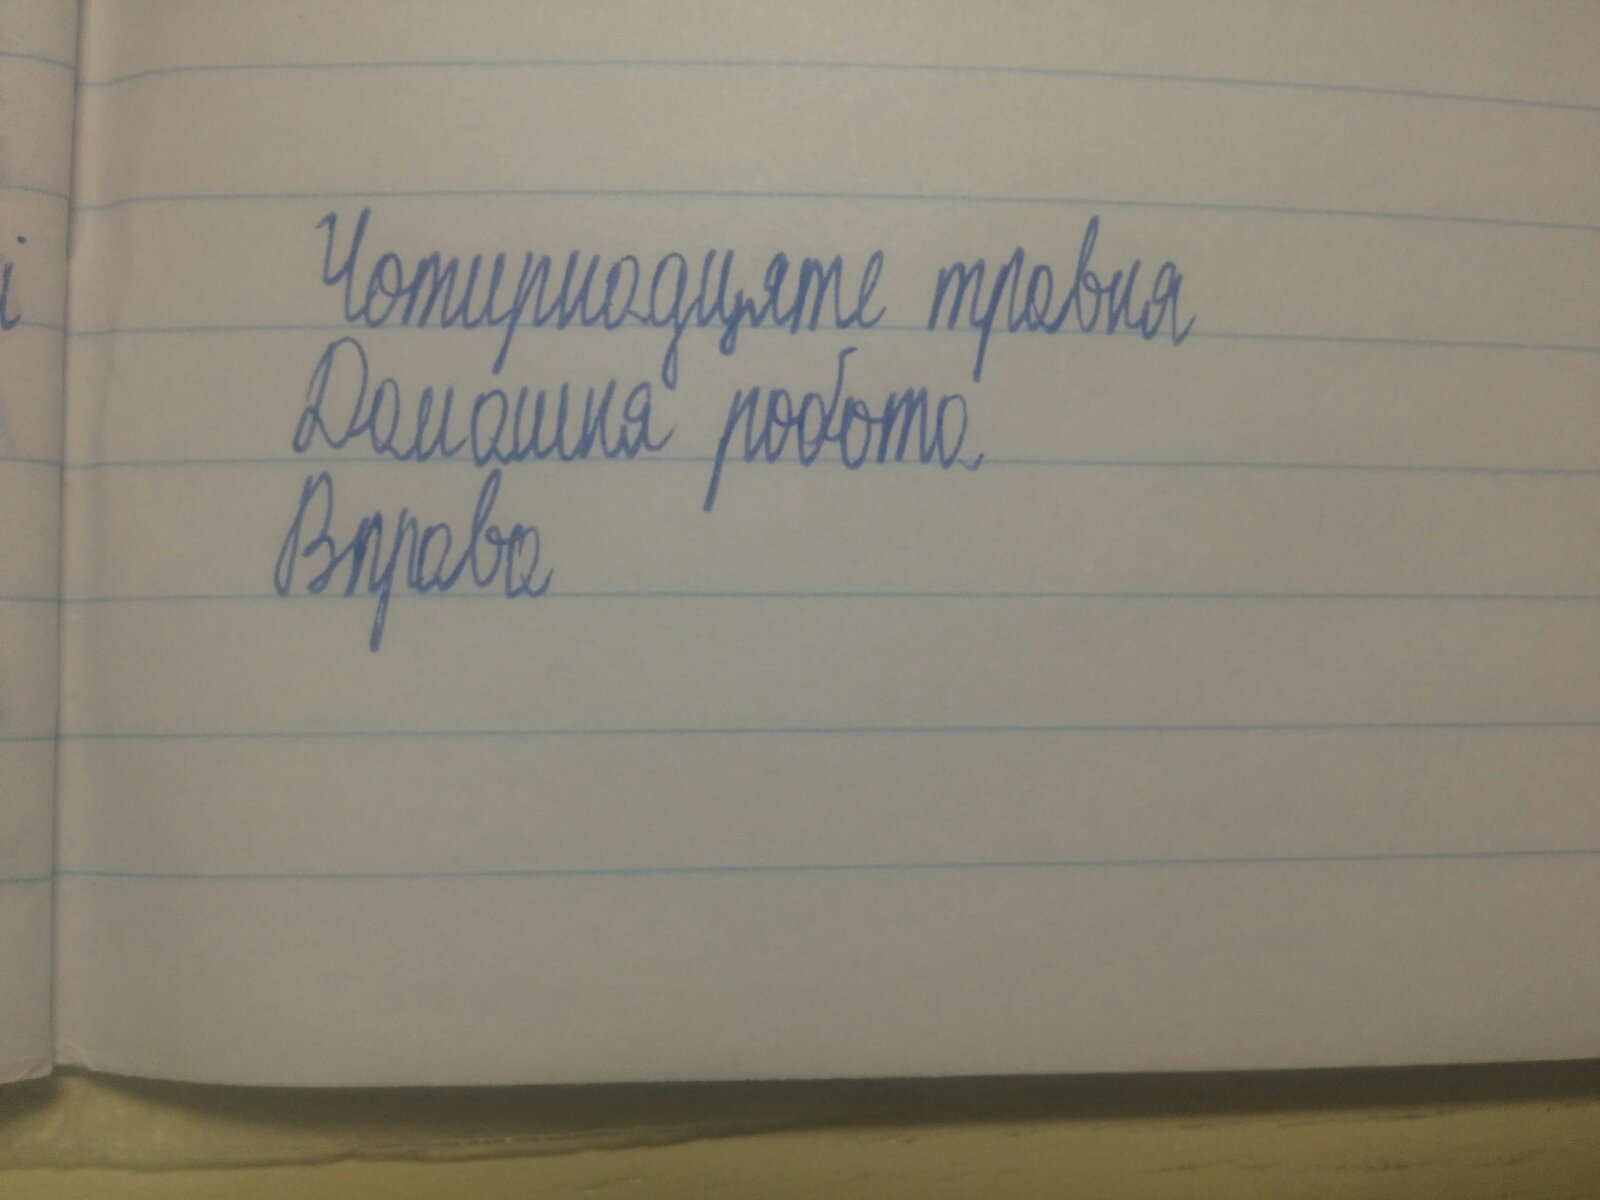 і
Чотирнадцяте травня
Домашня робота
Вправа